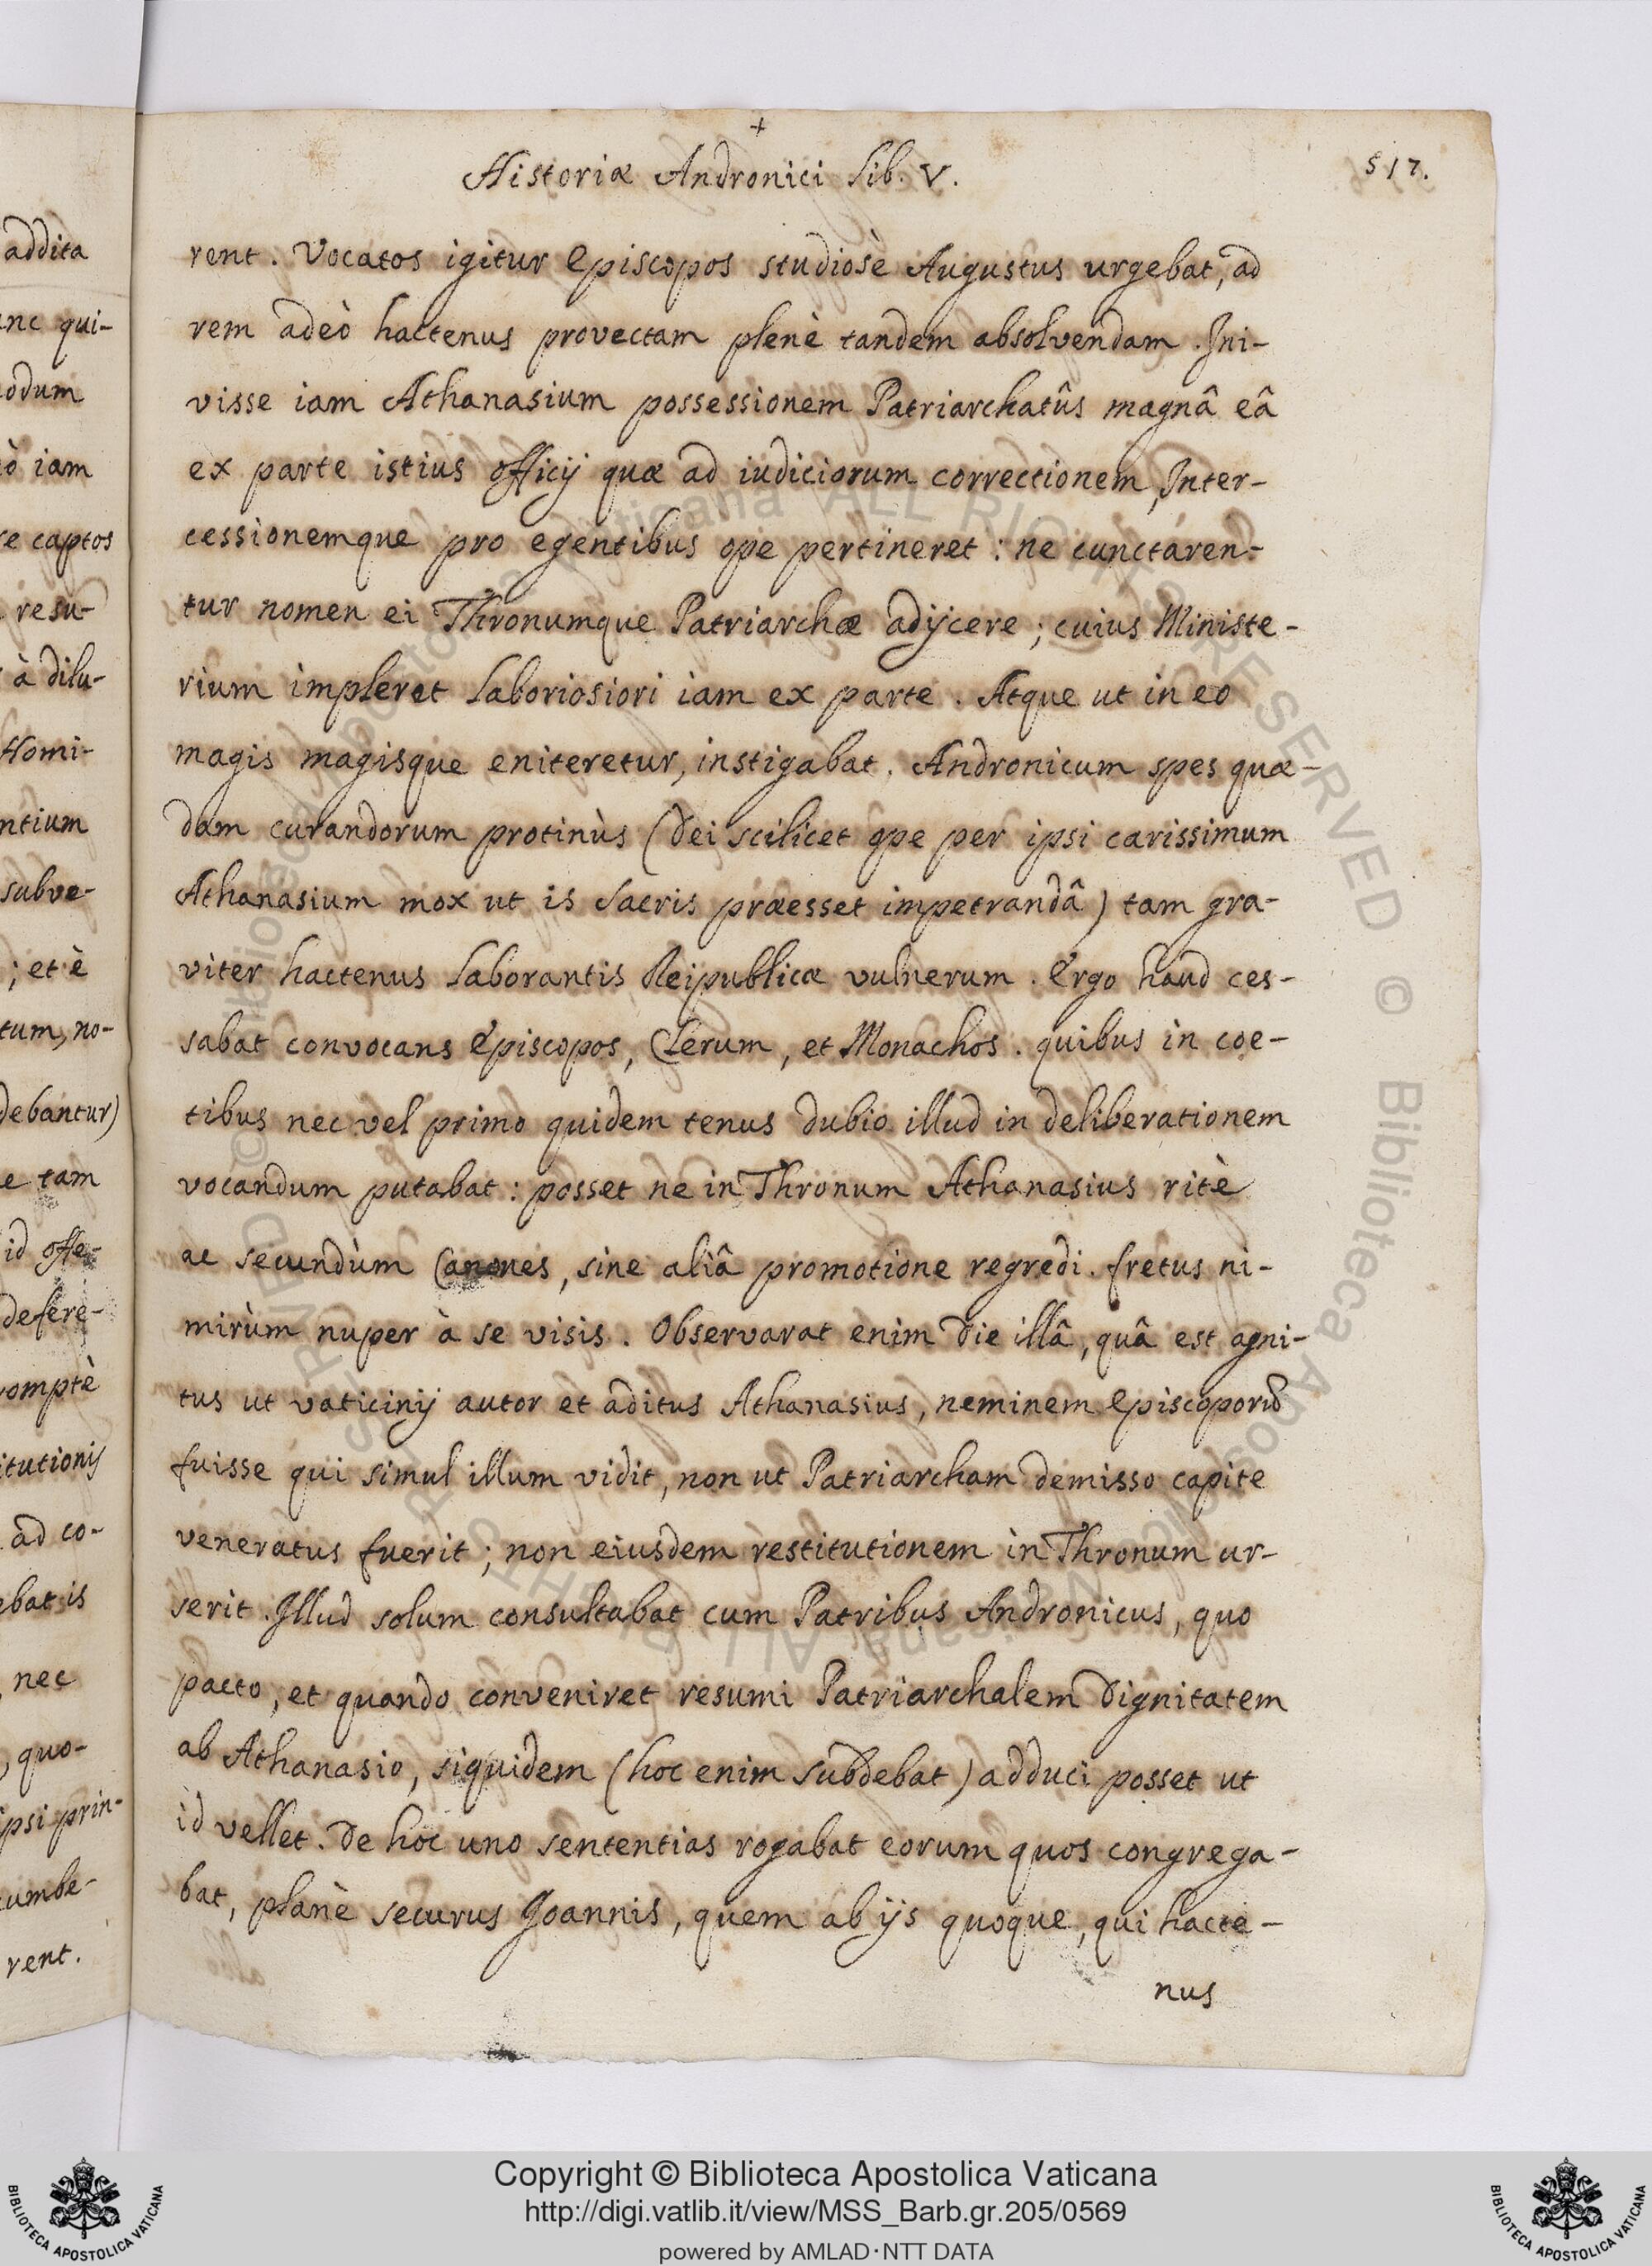 +
Historiæ Andronici Lib. V.
517.
rent. Vocatos igitur Episcopos studiosè Augustus urgebat, ad
rem adeò hactenus provectam plenè tandem absolvendam. Ini-
visse iam Athanasium possessionem Patriarchatûs magnâ eâ
ex parte istius officij quæ ad iudiciorum correctionem, Inter-
cessionemque pro egentibus ope pertineret: ne cunctaren-
tur nomen ei Thronumque Patriarchæ adijcere; cuius Ministe-
rium impleret laboriosiori iam ex parte. Atque ut in eo
magis magisque eniteretur, instigabat. Andronicum spes quæ-
dam curandorum protinùs (Dei scilicet ope per ipsi carissimum
Athanasium mox ut is sacris præesset impetrandâ) tam gra-
viter hactenus laborantis Reipublicæ vulnerum. Ergo haud ces-
sabat convocans Episcopos, Clerum, et Monachos. quibus in coe-
tibus nec vel primo quidem tenus dubio illud in deliberationem
vocandum putabat: posset ne in Thronum Athanasius ritè
ac secundùm Canones, sine aliâ promotione regredi. fretus ni-
mirùm nuper à se visis. Observarat enim die illâ, quâ est agni-
tus ut vaticinij autor et aditus Athanasius, neminem Episcoporũ
fuisse qui simul illum vidit, non ut Patriarcham demisso capite
veneratus fuerit; non eiusdem restitutionem in Thronum ur-
serit. Illud solum consultabat cum Patribus Andronicus, quo
pacto, et quando conveniret resumi Patriarchalem Dignitatem
ab Athanasio, siquidem (hoc enim subdebat) adduci posset ut
id vellet. De hoc uno sententias rogabat eorum quos congrega-
bat, planè securus Joannis, quem ab ijs quoque, qui hacte-
nus
addita
nc qui-
odum
ò iam
re captos
resu-
à dilu-
Homi-
ntium
subve-
; et è
tum, no-
debantur)
e tam
id offe-
defere-
omptè
itutionis
ad co-
ebat is
, nec
, quo-
ipsi prin-
cumbe-
rent.
Copyright © Biblioteca Apostolica Vaticana
http://digi.vatlib.it/view/MSS_Barb.gr.205/0569
powered by AMLAD·NTT DATA
BIBLIOTECA APOSTOLICA VATICANA
BIBLIOTECA APOSTOLICA VATICANA